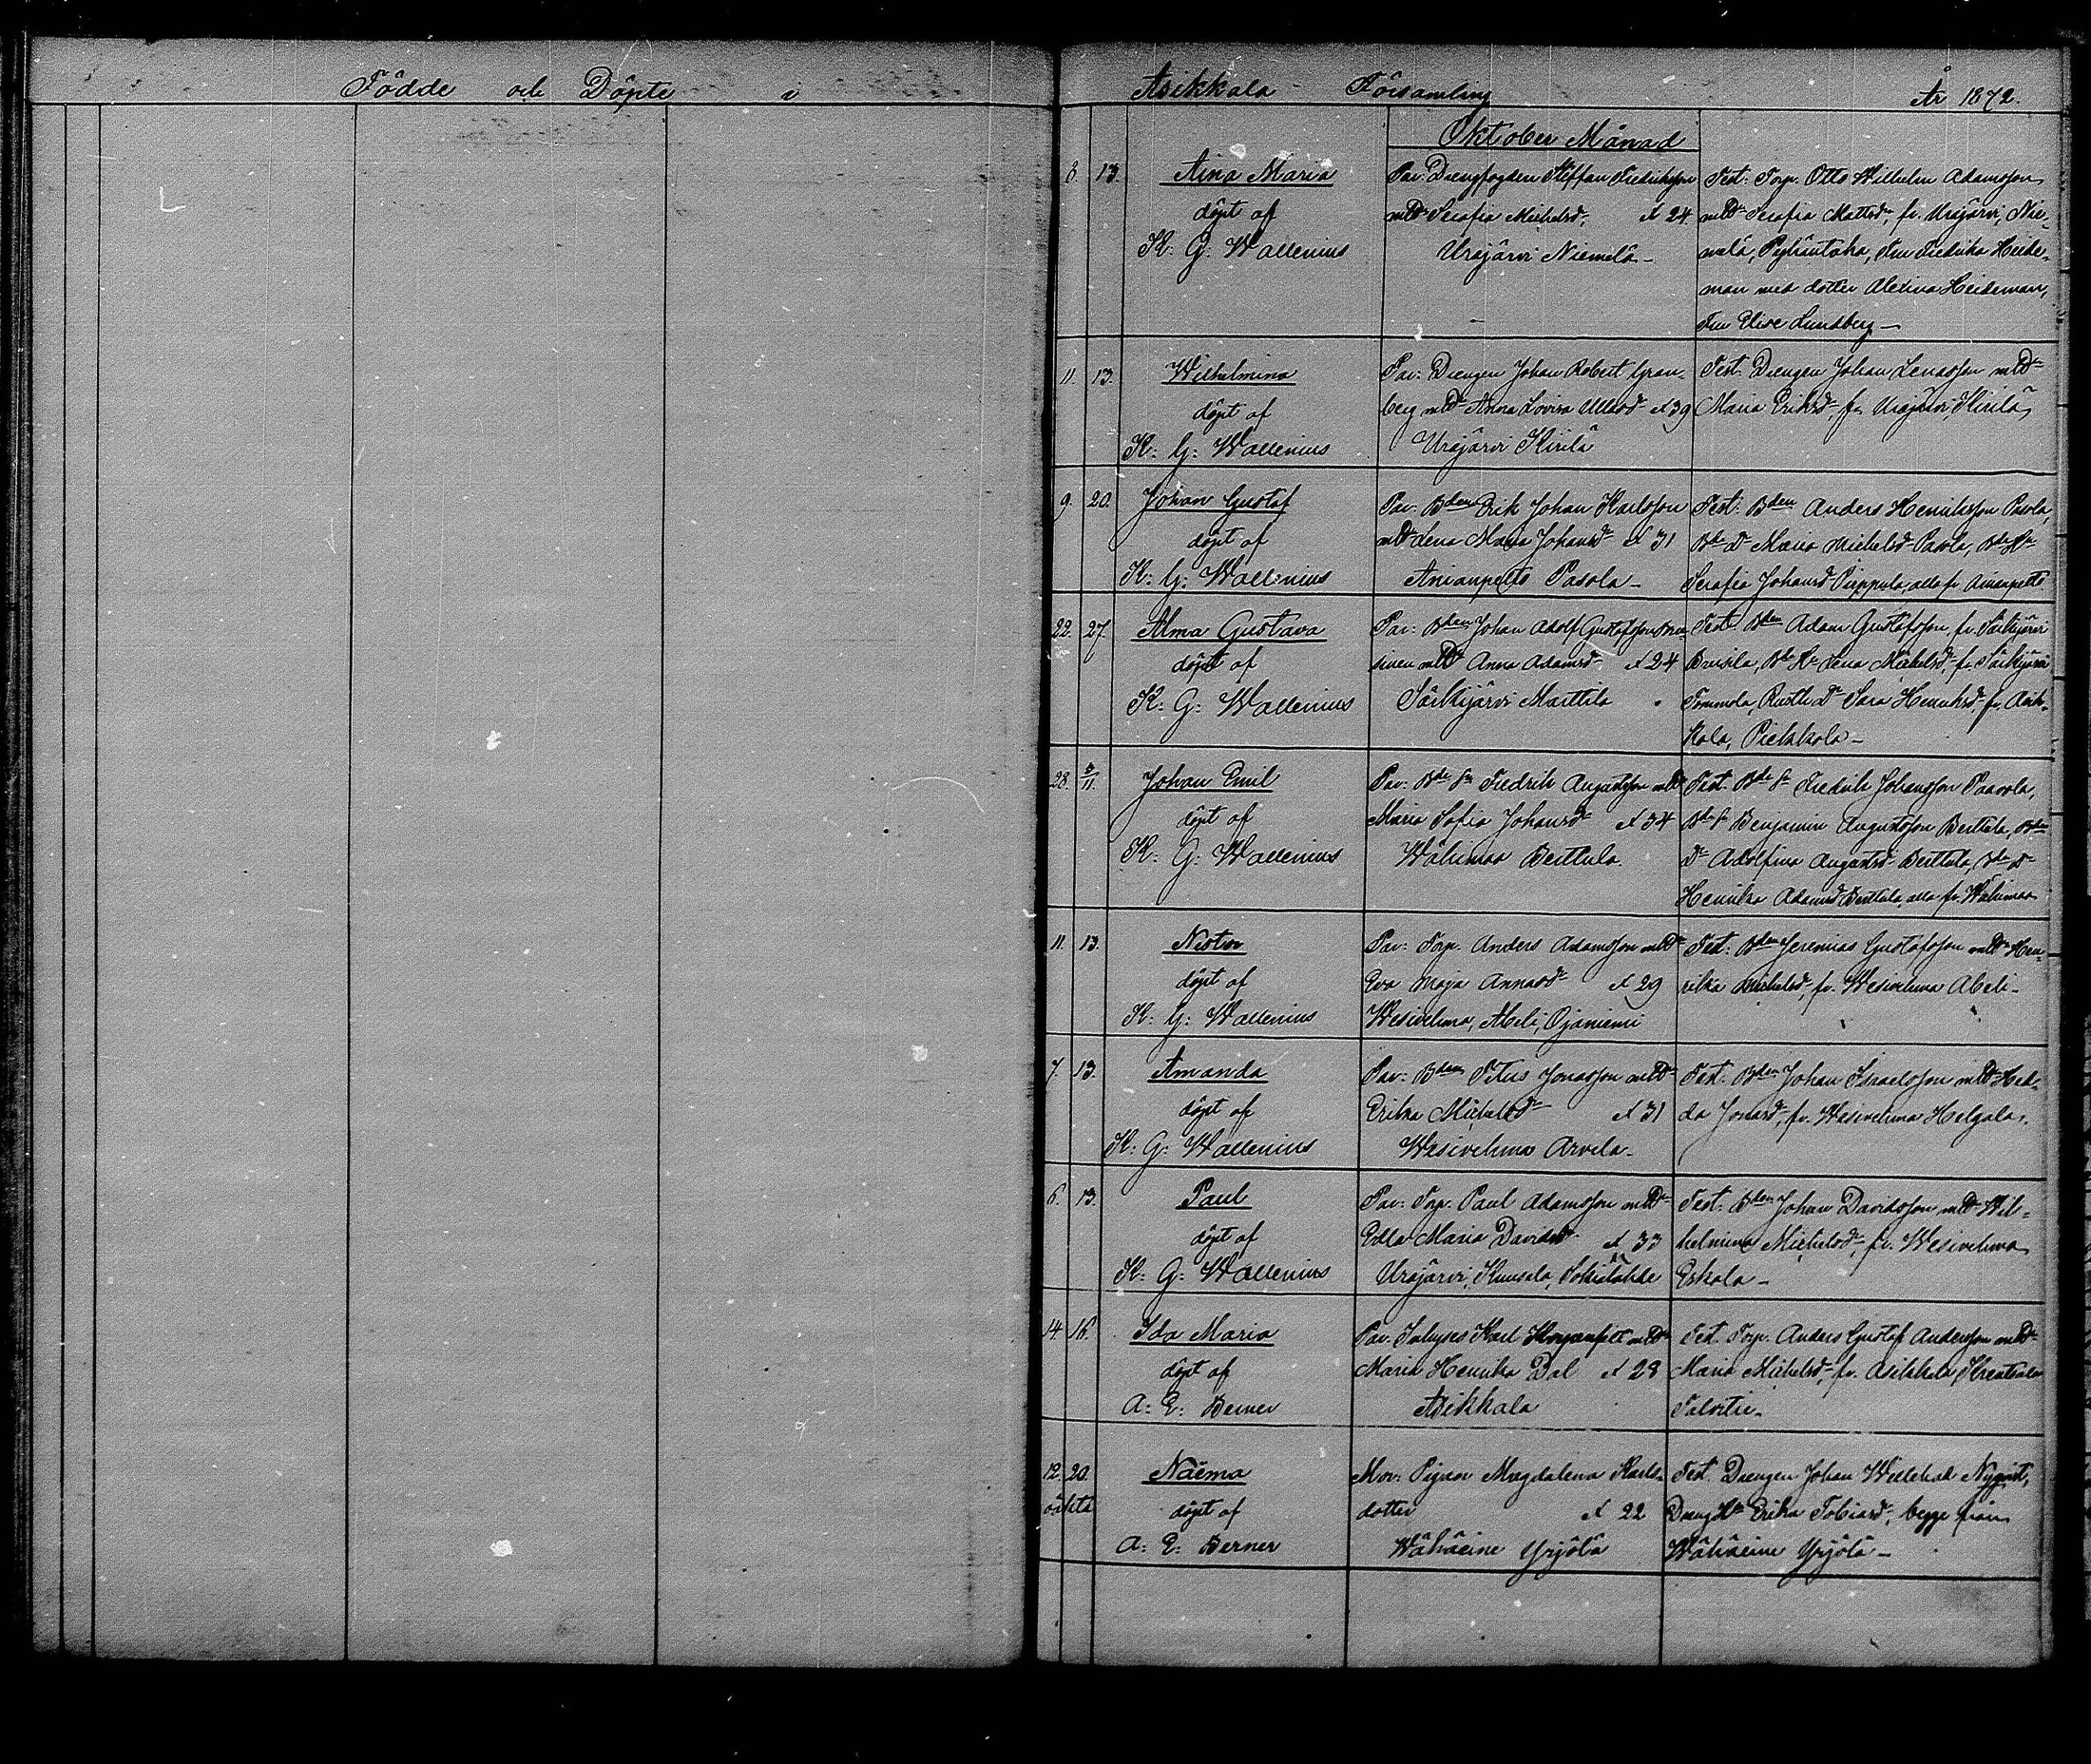 Födde och Döpte i Asikkala Församling År 1872.
Oktober Månad
8. 13. Aina Maria
döpt af
K: G: Wallenius
Par: Drengfogden Steffan Fredriksson
m Hu Serafia Michelsd:, ål 24
Urajärvi Niemilä
Test: Torp. Otto Wilhelm Adamsson
m Hu Serafia Mattsd:, fr. Urajärvi, Nie-
melä, Fredrika Heide-
man med dotter Alexina Heideman,
Elise Lundberg
11. 13. Wilhelmina
döpt af
K: G: Wallenius
Par: Drengen Johan Robert Gran-
berg m Hu Anna Lovisa Ullasd: ål 39
Urajärvi Kirilä
Test. Drengen Johan Lenasson m Hu
Maria Eriksd:, fr. Urajärvi, Kirilä
9. 20. Johan Gustaf
döpt af
K: G: Wallenius
Par: Bden Erik Johan Karlsson
m Hu Lena Maria Johansd: ål 31
Anianpelto Pasola
Test: Bden Anders Henriksson Pasola,
Bde D: Maria Michelsd: Pasola, Bde Hu
Serafia Johansd: alla fr. Anianpelto
22. 27. Alma Gustava
döpt af
K: G: Wallenius
Par: Bden Johan Adolf Gustafsson
m Hu Anna Adamsd: ål 24
Särkijärvi Marttila
Test: Bden Adam Gustafsson, fr. Särkijärvi
Bde Hu Lena Michelsd:, fr. Särkijärvi
Tommola, D: Sara Henriksd: fr. Asik-
kala, Piekkola
28. 3/11. Johan Emil
döpt af
K: G: Wallenius
Par: Bde Sn Fredrik Augustsson m Hu
Maria Sofia Johansd: ål 34
Wähimaa Berttula.
Test. Bde Sn Fredrik Johansson Paavola,
Bde Sn Benjamin Augustsson Berttula, Bde
D: Adolfina Augustsd: Berttula, Bde D:
Henrika Adamsd: Berttula, alla fr. Wähimaa
11. 13. Nestor
döpt af
K: G: Wallenius
Par: Torp. Anders Adamsson m Hu
Eva Maja Annasd: ål 29
Wesivehma, Abeli, Ojaniemi
Test: Bden Jeremias Gustafsson m Hu Hen-
rika Michelsd:, fr. Wesivehma Abeli
7. 13. Amanda
döpt af
K: G: Wallenius
Par: Bden Titus Jonasson m Hu
Erika Michelsd: ål 31
Wesivehma Arvela
Test: Bden Johan Israelsson m Hu Hed-
da Jonasd:, fr. Wesivehma Helgala.
6. 13. Paul
döpt af
K: G: Wallenius
Par: Torp. Paul Adamsson m Hu
Edla Maria Davidsd: ål 33
Urajärvi, Kuusela,
Test: Bden Johan Davidsson m Hu Wil-
helmina Michelsd:, fr. Wesivehma
Eskola
14. 16. Ida Maria
döpt af
A: E: Berner
Par. Inhyses Karl m Hu
Maria Henrika Dal ål 28
Asikkala
Test. Torp. Anders Gustaf Andersson m Hu
Maria Michelsd:, fr. Asikkala
12. 20. Naëma
oäkta döpt af
A: E: Berner
Mor: Pigan Magdalena Karls-
dotter ål 22
Wähäeine Yrjölä
Test. Drengen Johan Nyqvist,
Dreng Hu Erika Tobiasd:, begge från
Wähäeine Yrjölä